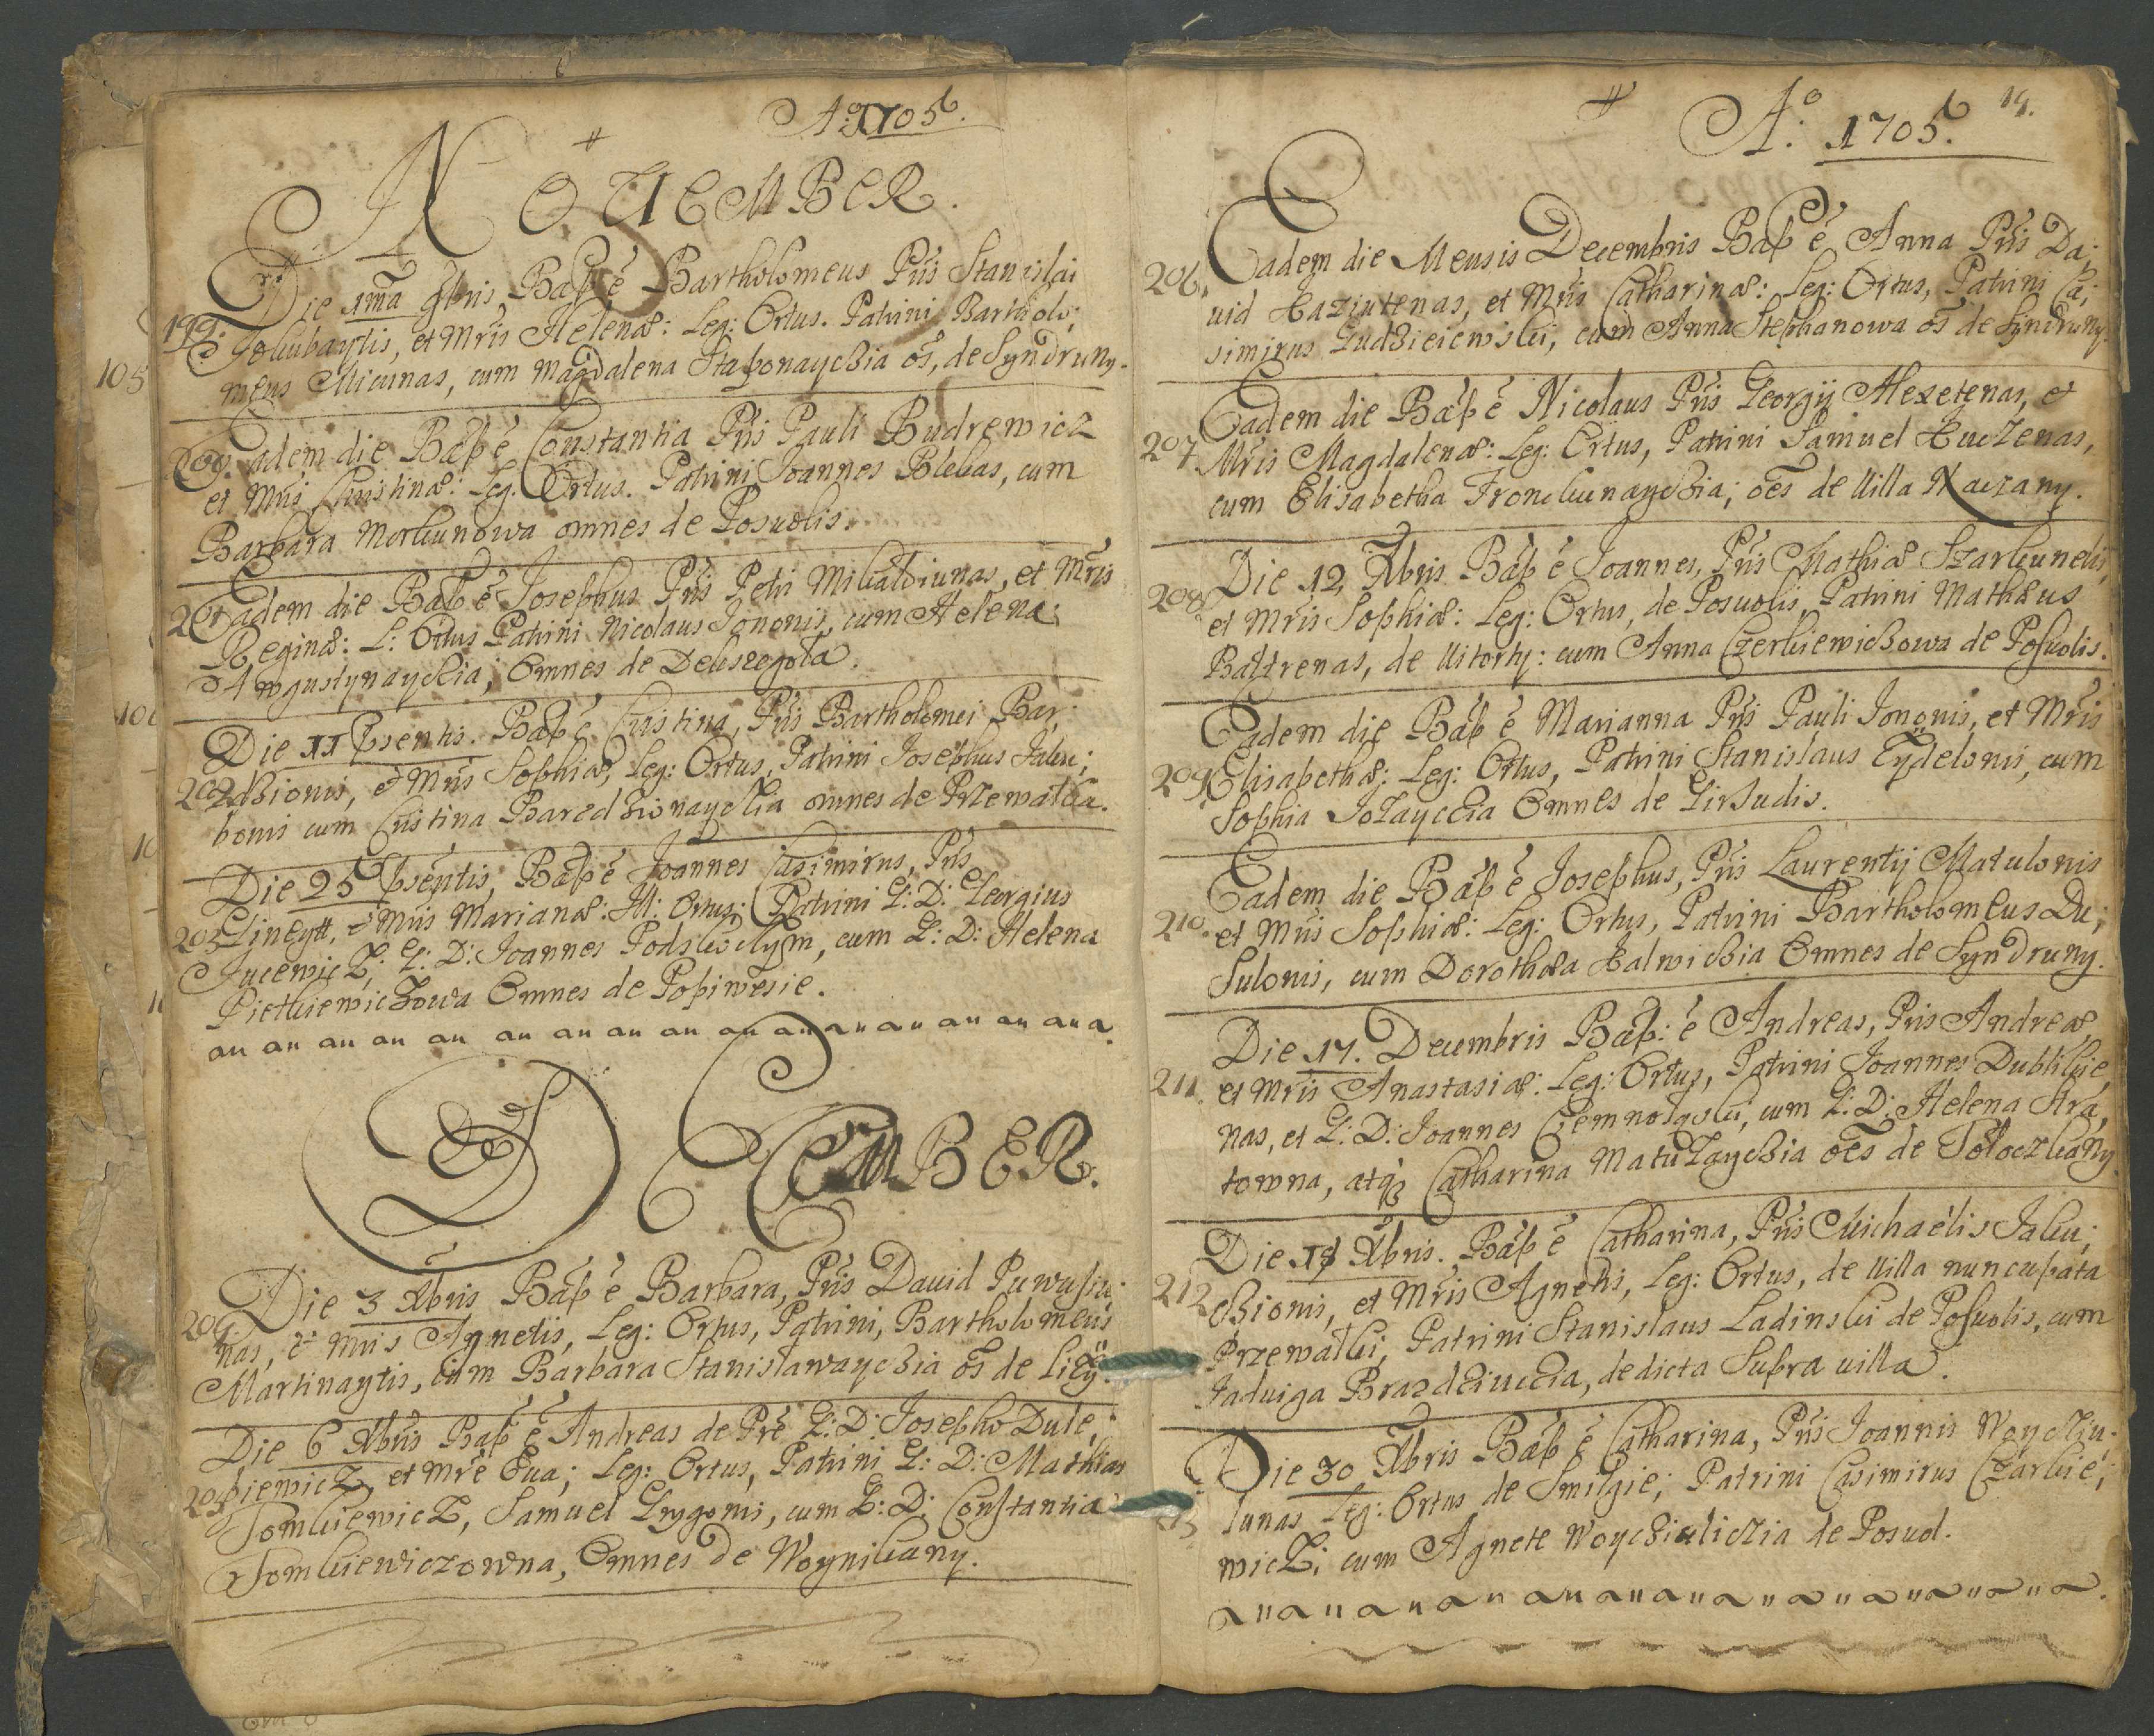 Aº 1705.
NOUEMBER.
Die 1ma 9bris Bap: é Bartholomeus Pris Stanislai
199. Jokubaytis, et Mris Helenæ: Leg: Ortus. Patrini Bartholo;
meus Micunas, cum Magdalena Staponaychia oēs, de Syndruny.
Eadem die Bap é Constantia Pris Pauli Budrewicz
200. et Mris Christinæ: Leg: Ortus. Patrini Joannes Blekas, cum
Barbara Morkunowa omnes de Posuolis.
201 Eadem die Bap é Josephus Pris Petri Mikałdiunas, et Mris
Reginæ: L: Ortus Patrini Nicolaus Jononis, cum Helena
Awgustynaychia; Omnes de Dekszegoła.
Die 11 Psentis. Bap é Cristina, Pris Bartholomei Bar;
202 zdzionis, et Mris Sophiæ, Leg: Ortus, Patrini Josephus Jaku;
bonis cum Cristina Barzdzionaychia omnes de Przewałka.
Die 25 Psentis, Bap é Joannes Casimirus, Pris
203 et Mris Marianæ: Ill: Ortus: Patrini G: D: Georgius
Jucewicz, G: D: Joannes, cum G: D: Helena
Pietkiewiczowa Omnes de Popiwesie.
an an an an an an an an an an an an an an a.
DECEMBER.
Die 3 Xbris Bap é Barbara, Pris Dauid
204 nas, et Mris Agnetis, Leg: Ortus, Patrini, Bartholomeus
Martinaytis, cum Barbara Stanislawaychia oēs de
Die 6 Xbris Bap é Andreas de Prē G: D: Josepho Dule,
205 kiewicz, et Mrē Eua; Leg: Ortus, Patrini G: D: Mathias
Tomkiewicz, Samuel Grygonis, cum G: D: Constantia
Tomkiewiczowna, Omnes de Woynikany.
Aº. 1705. 19.
Eadem die Mensis Decembris Bap é Anna Pris Da;
206. uid Kaziutenas, et Mris Catharinæ: Leg: Ortus, Patrini Ca;
simirus Gudzieiewski, cum Anna Stephanowa oēs de Syndruny.
Eadem die Bap é Nicolaus Pris Georgij Alexetenas, et
207 Mris Magdalenæ: Leg: Ortus, Patrini Samuel Kuczenas,
cum Elisabetha Fronckunaychia; oēs de Uilla Naczany.
Die 12 Xbris Bap é Joannes, Pris Mathiæ Szarkunelis,
208 et Mris Sophiæ: Leg: Ortus, de Posuolis, Patrini Mathæus
Baltrenas, de Uitorty: cum Anna Czerkiewichowa de Posuolis.
Eadem die Bap é Marianna Pris Pauli Jononis, et Mris
209. Elisabethæ: Leg: Ortus, Patrini Stanislaus Eydelonis, cum
Sophia Jozayccia Omnes de Girsudis.
Eadem die Bap é Josephus, Pris Laurentij Matulonis
210. et Mris Sophiæ: Leg: Ortus, Patrini Bartholomeus Du;
sulonis, cum Dorothæa Kalwichia Omnes de Syndruny.
Die 17. Decembris Bap: é Andreas, Pris Andreæ
211. et Mris Anastasiæ: Leg: Ortus, Patrini Joannes Dublikie,
nas, et G: D: Joannes Czemnolqski, cum G: D: Helena Stra,
towna, atqз Catharina Matuzaychia oēs de Tołoczkany.
Die 18 Xbris. Bap é Catharina, Pris Michaëlis Jaku;
212 chionis, et Mris Agnetis, Leg: Ortus, de Uilla nuncupata
Przewałki, Patrini Stanislaus Ladinski de Posuolis, cum
Jaduiga Brazdziuccia, de dicta Supra uilla.
Die 30 Xbris Bap é Catharina, Pris Joannis Woycziu-
213 lunas Leg: Ortus de Smilgie; Patrini Casimirus Czarkie;
wicz; cum Agnete Woychiulickia de Posuol.